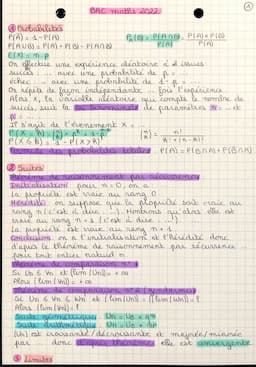 BAC maths 2022
① Probabilités
P(A) = 1 - P(Ā)
P(A∪B) = P(A) + P(B) - P(A∩B)
E(X) = n.p
On effectue une expérience aléatoire à 2 issues
succès ... avec une probabilité de p = ...
échec ... avec une probabilité de 1-p = ...
On répète de façon indépendante ... fois l'expérience
Alors X, la variable aléatoire qui compte le nombre de
succès, suit la loi binomiale de paramètres n = ... et
p = ...
Il s'agit de l'événement X = ...
Formule des probabilités totales P(A) = P(B∩A) + P(B̄∩A)
② Suites
Théorème de raisonnement par récurrence
Initialisation pour n = 0, on a
La propriété est vraie au rang 0
Hérédité on suppose que la propriété soit vraie au
rang n (c'est à dire ...). Montrons qu'alors elle est
vraie au rang n + 1 (c'est à dire ...)
La propriété est vraie au rang n + 1
Conclusion on a l'initialisation et l'hérédité donc
d'après le théorème de raisonnement par récurrence
pour tout entier naturel n
Théorème de comparaison n°1
Si Un ≤ Vn et lim (Un) = +∞
Alors lim (Vn) = +∞
Théorème de comparaison n°2 (gendarmes)
Si Un ≤ Vn ≤ Wn et lim (Un) = lim (Wn) = l
Alors lim (Vn) = l
Suite géométrique Un = U0 × qⁿ
Suite arithmétique Un = U0 + nr
(Un) est croissante/décroissante et majorée/minorée
par donc d'après théorème elle est convergente
③ Limites